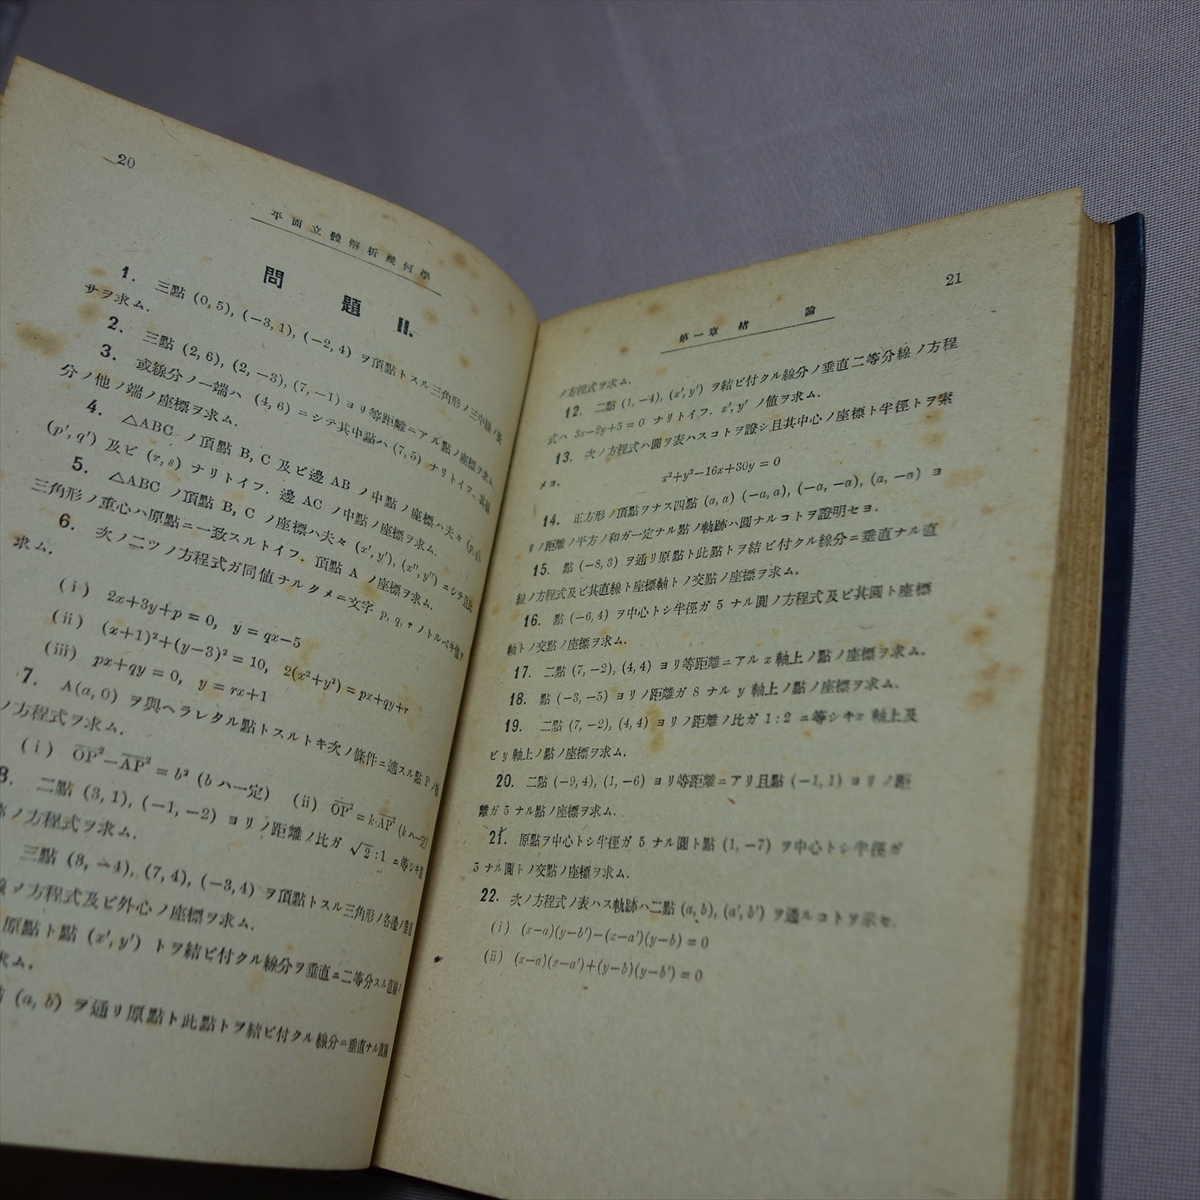 20
平面立體解析幾何學
問題 II.
1. 三點 (0, 5), (−3, 1), (−2, 4) ヲ頂點トスル三角形ノ三中線ノ長
サヲ求ム.
2. 三點 (2, 6), (2, −3), (7, −1) ヨリ等距離ニアル點ノ座標ヲ求ム.
3. 或線分ノ一端ハ (4, 6) ニシテ其中點ハ (7, 5) ナリトイフ. 其線
分ノ他ノ端ノ座標ヲ求ム.
4. △ABC ノ頂點 B, C 及ビ邊 AB ノ中點ノ座標ハ夫々 (p, q),
(p′, q′) 及ビ (r, s) ナリトイフ. 邊 AC ノ中點ノ座標ヲ求ム.
5. △ABC ノ頂點 B, C ノ座標ハ夫々 (x′, y′), (x″, y″) ニシテ且
三角形ノ重心ハ原點ニ一致スルトイフ. 頂點 A ノ座標ヲ求ム.
6. 次ノ二ツノ方程式ガ同値ナルタメニ文字 p, q, r ノトルベキ値ヲ
求ム.
(i) 2x+3y+p = 0, y = qx−5
(ii) (x+1)²+(y−3)² = 10, 2(x²+y²) = px+qy+r
(iii) px+qy = 0, y = rx+1
7. A(a, 0) ヲ與ヘラレタル點トスルトキ次ノ條件ニ適スル點 P ノ
ノ方程式ヲ求ム.
(i) OP²−AP² = b² (b ハ一定) (ii) OP² = k·AP² (k ハ一定)
8. 二點 (3, 1), (−1, −2) ヨリノ距離ノ比ガ √2 : 1 ニ等シキ
ノ方程式ヲ求ム.
三點 (3, −4), (7, 4), (−3, 4) ヲ頂點トスル三角形ノ各邊ノ垂直
線ノ方程式及ビ外心ノ座標ヲ求ム.
原點ト點 (x′, y′) トヲ結ビ付クル線分ヲ垂直ニ二等分スル直線ノ
求ム.
(a, b) ヲ通リ原點ト此點トヲ結ビ付クル線分ニ垂直ナル直線
21
第一章 緒論
ノ方程式ヲ求ム.
12. 二點 (1, −4), (x′, y′) ヲ結ビ付クル線分ノ垂直二等分線ノ方程
式ハ 3x−2y+5 = 0 ナリトイフ. x′, y′ ノ値ヲ求ム.
13. 次ノ方程式ハ圓ヲ表ハスコトヲ證シ且其中心ノ座標ト半徑トヲ索
メヨ.
x²+y²−16x+30y = 0
14. 正方形ノ頂點ヲナス四點 (a, a) (−a, a), (−a, −a), (a, −a) ヨ
リノ距離ノ平方ノ和ガ一定ナル點ノ軌跡ハ圓ナルコトヲ證明セヨ.
15. 點 (−8, 3) ヲ通リ原點ト此點トヲ結ビ付クル線分ニ垂直ナル直
線ノ方程式及ビ其直線ト座標軸トノ交點ノ座標ヲ求ム.
16. 點 (−6, 4) ヲ中心トシ半徑ガ 5 ナル圓ノ方程式及ビ其圓ト座標
軸トノ交點ノ座標ヲ求ム.
17. 二點 (7, −2), (4, 4) ヨリ等距離ニアル x 軸上ノ點ノ座標ヲ求ム.
18. 點 (−3, −5) ヨリノ距離ガ 8 ナル y 軸上ノ點ノ座標ヲ求ム.
19. 二點 (7, −2), (4, 4) ヨリノ距離ノ比ガ 1 : 2 ニ等シキ x 軸上及
ビ y 軸上ノ點ノ座標ヲ求ム.
20. 二點 (−9, 4), (1, −6) ヨリ等距離ニアリ且點 (−1, 1) ヨリノ距
離ガ 5 ナル點ノ座標ヲ求ム.
21. 原點ヲ中心トシ半徑ガ 5 ナル圓ト點 (1, −7) ヲ中心トシ半徑ガ
5 ナル圓トノ交點ノ座標ヲ求ム.
22. 次ノ方程式ノ表ハス軌跡ハ二點 (a, b), (a′, b′) ヲ通ルコトヲ示セ.
(i) (x−a)(y−b′)−(x−a′)(y−b) = 0
(ii) (x−a)(x−a′)+(y−b)(y−b′) = 0